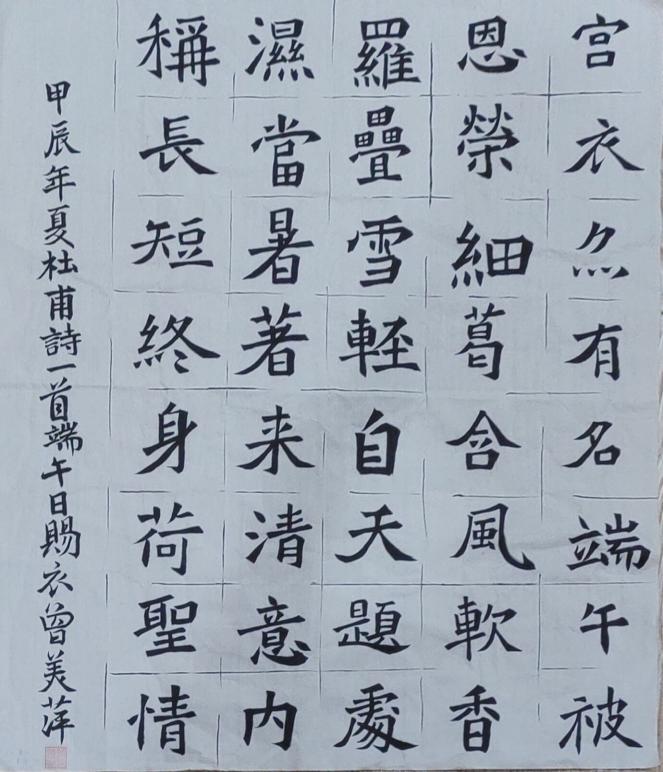 宮衣亦有名端午被
恩榮細葛含風軟香
羅疊雪輕自天題處
濕當暑著来清意内
稱長短終身荷聖情
甲辰年夏杜甫詩一首端午日賜衣曾美萍